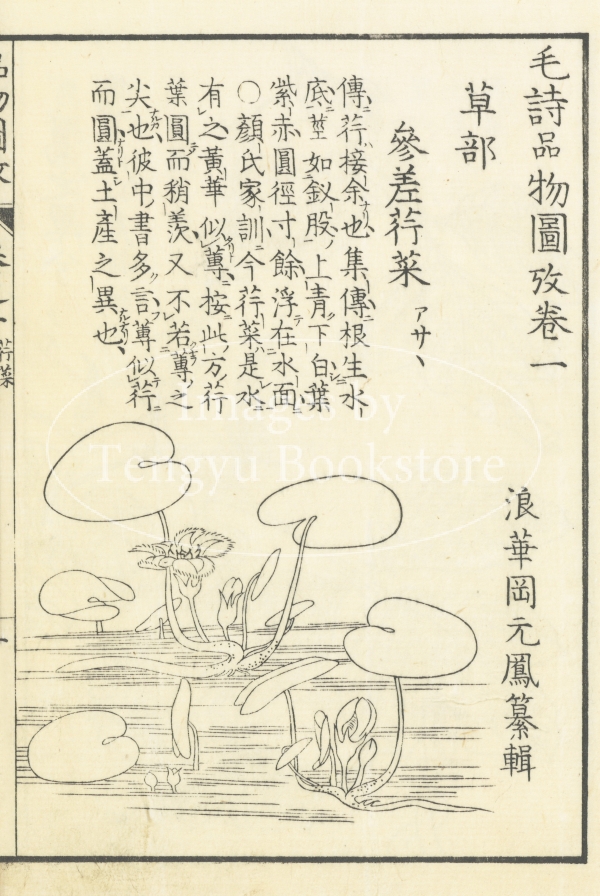 毛詩品物圖攷卷一
浪華岡元鳳纂輯
草部
參差荇菜 アサヽ
傳荇接余也集傳根生水
底莖如釵股上青下白葉
紫赤圓徑寸餘浮在水面
○顏氏家訓今荇菜是水
有之黃華似蓴按此方荇
葉圓而稍羨又不若蓴之
尖也彼中書多言蓴似荇
而圓蓋土產之異也
荇菜
Images by
Tengyu Bookstore